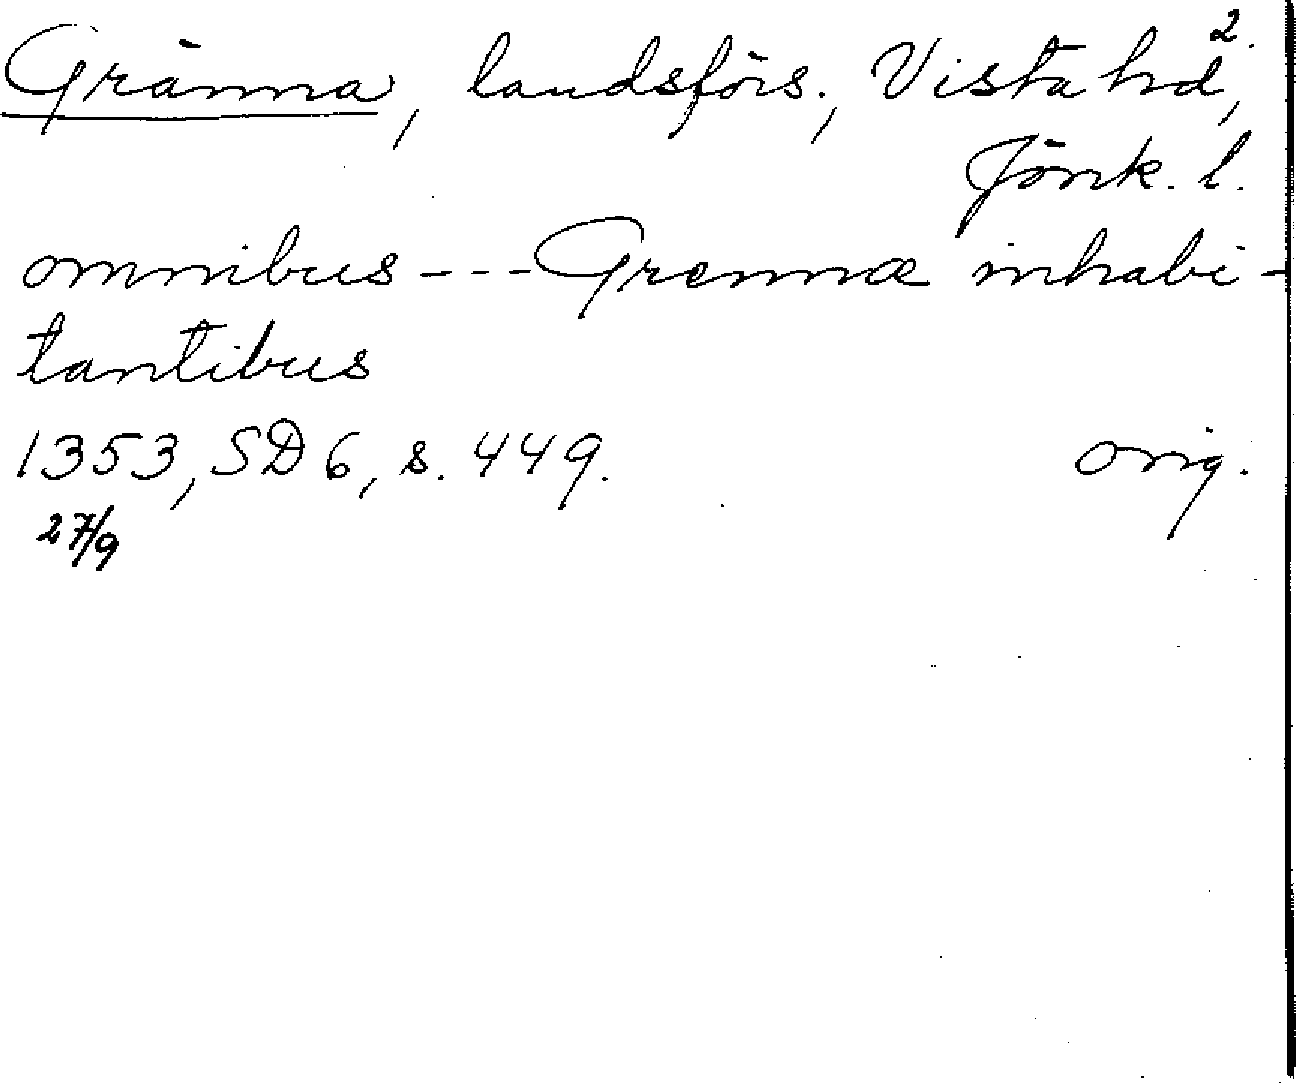 2.
Gränna, landsförs., Vista hd,
Jönk. l.
omnibus --- Grennæ inhabi-
tantibus
1353, SD 6, s. 449. orig.
27/9